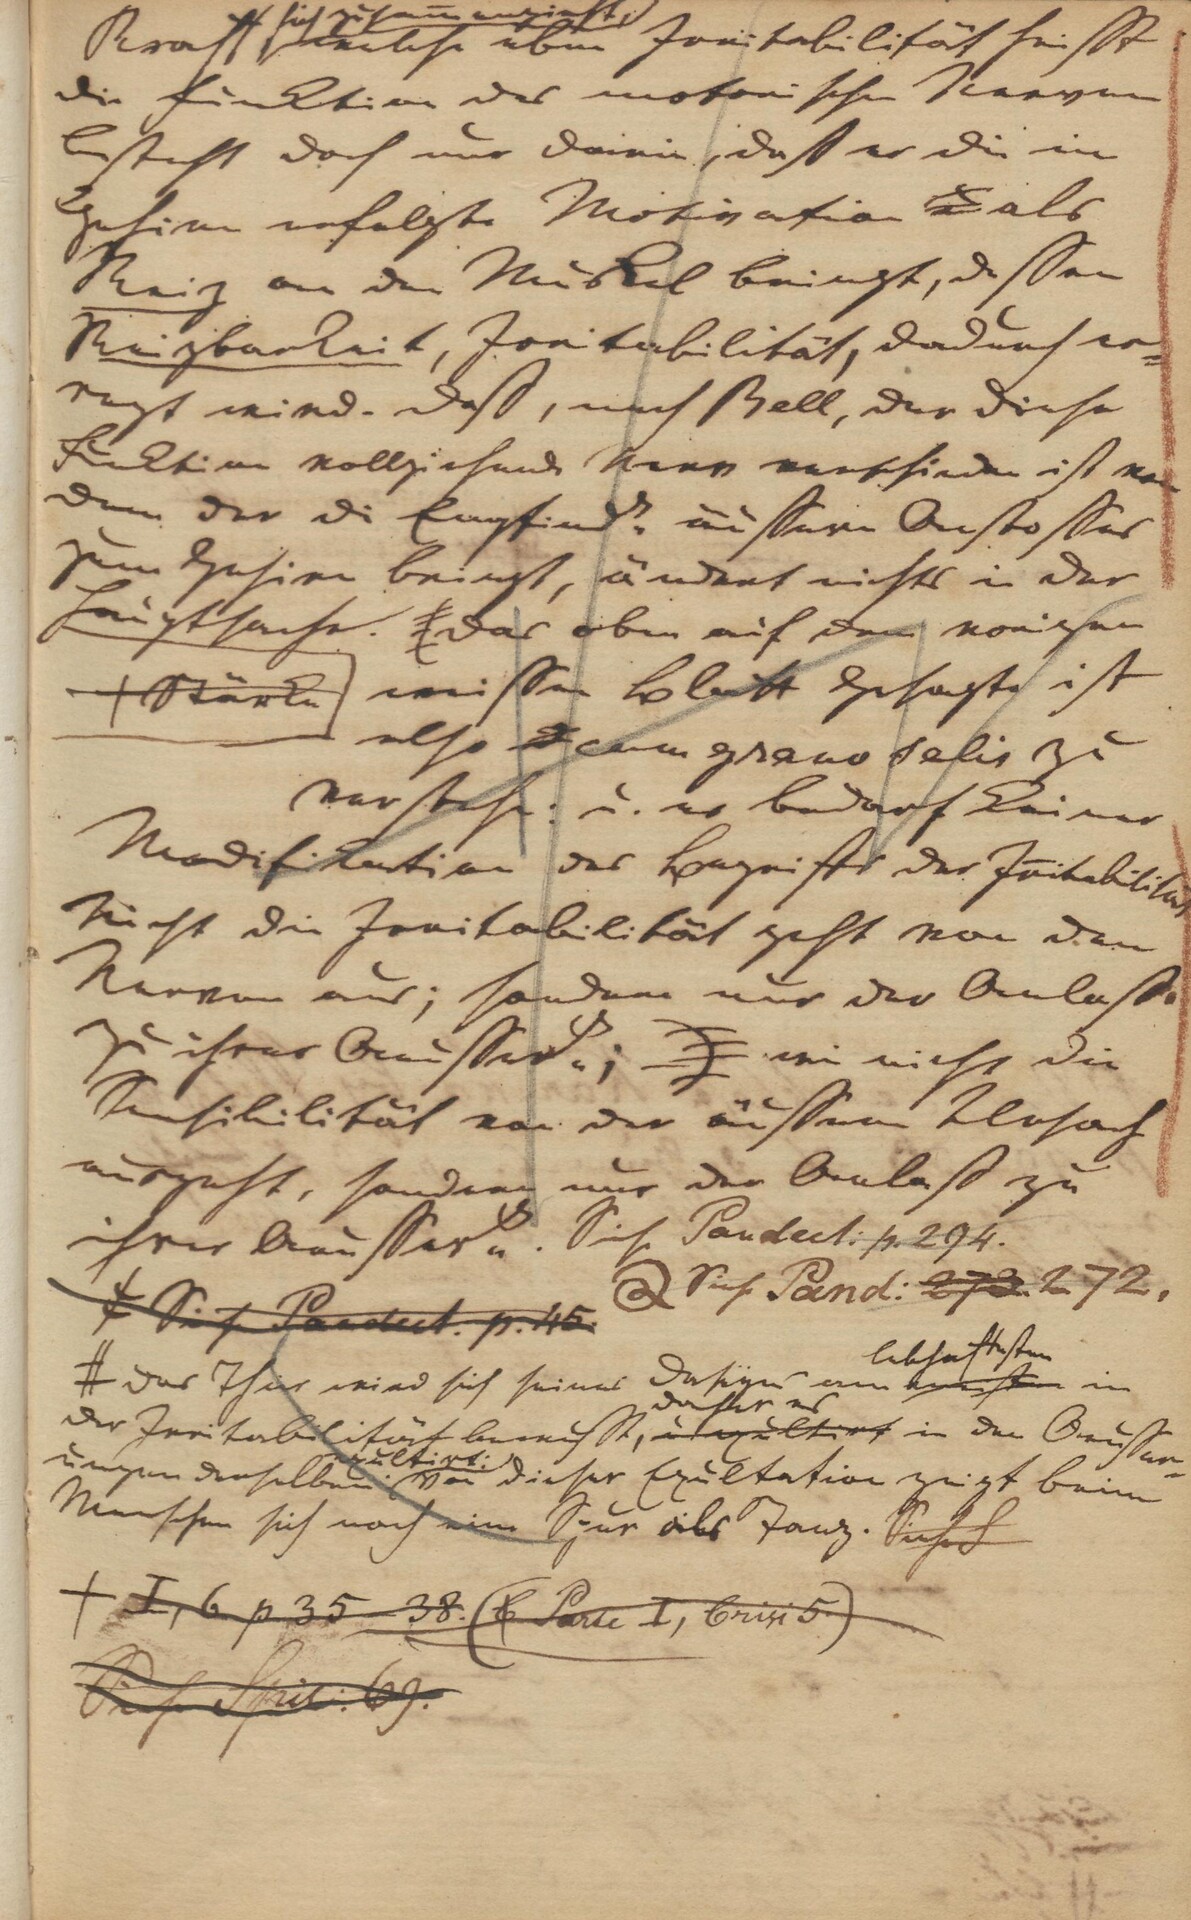 sich zusammenzieht,
Kraft welche eben Irritabilität heißt
die Funktion des motorischen Nerven
besteht doch nur darin, daß er die im
Gehirn erfolgte Motivation als
Reiz an den Muskel bringt, dessen
Reizbarkeit, Irritabilität, dadurch er=
regt wird. daß, nach Bell, der diese
Funktion vollziehende Nerv verschieden ist von
dem der die Empfindg. äussern Anstosses
zum Gehirn bringt, ändert nichts in der
Hauptsache. das oben auf dem vorigen
+ Stärke weissen Blatt Gesagte ist
also cum grano salis zu
verstehn: u. es bedarf keiner
Modifikation des Begriffs der Irritabilität
Nicht die Irritabilität geht von den
Nerven aus; sondern nur der Anlaß
zu ihrer Aeusserg.; wie nicht die
Sensibilität von der äussern Ursach
ausgeht, sondern nur der Anlaß zu
ihrer Aeusserg. Sieh Pandect: p. 294.
Sieh Pand: 273. 272.
Sieh Pandect. p. 45.
lebhaftesten
# das Thier wird sich seines Daseyns am meisten in
daher es
der Irritabilität bewusst, u. exultirt in den Aeusser=
exultirt:
ungen derselben: von dieser Exultation zeigt beim
Menschen sich noch eine Spur als Tanz. Siehe
+ I, 6 p 35—38. (6 Parte I, Crisi 5.)
Sieh Spic: 69.